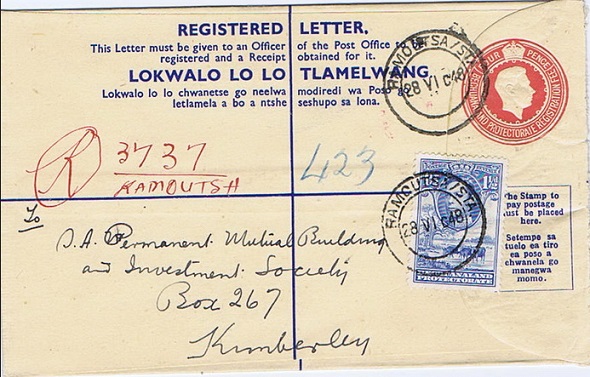 REGISTERED LETTER.
This Letter must be given to an Officer of the Post Office to be
registered and a Receipt obtained for it.
LOKWALO LO LO TLAMELWANG
Lokwalo lo lo chwanetse go neelwa modiredi wa Posa
letlamela a bo a ntshe seshupo sa lona.
RAMOUTSA/STA.
28 VI C48
R 3737
RAMOUTSH
423
1½
RAMOUTSA/STA.
28 VI C48
BECHUANALAND
PROTECTORATE
The Stamp to
pay postage
must be placed
here.
Setempe sa
tuelo ea tiro
ea poso a
chwanela go
manegwa
momo.
To
S.A. Permanent Mutual Building
and Investment Society
Box 267
Kimberley